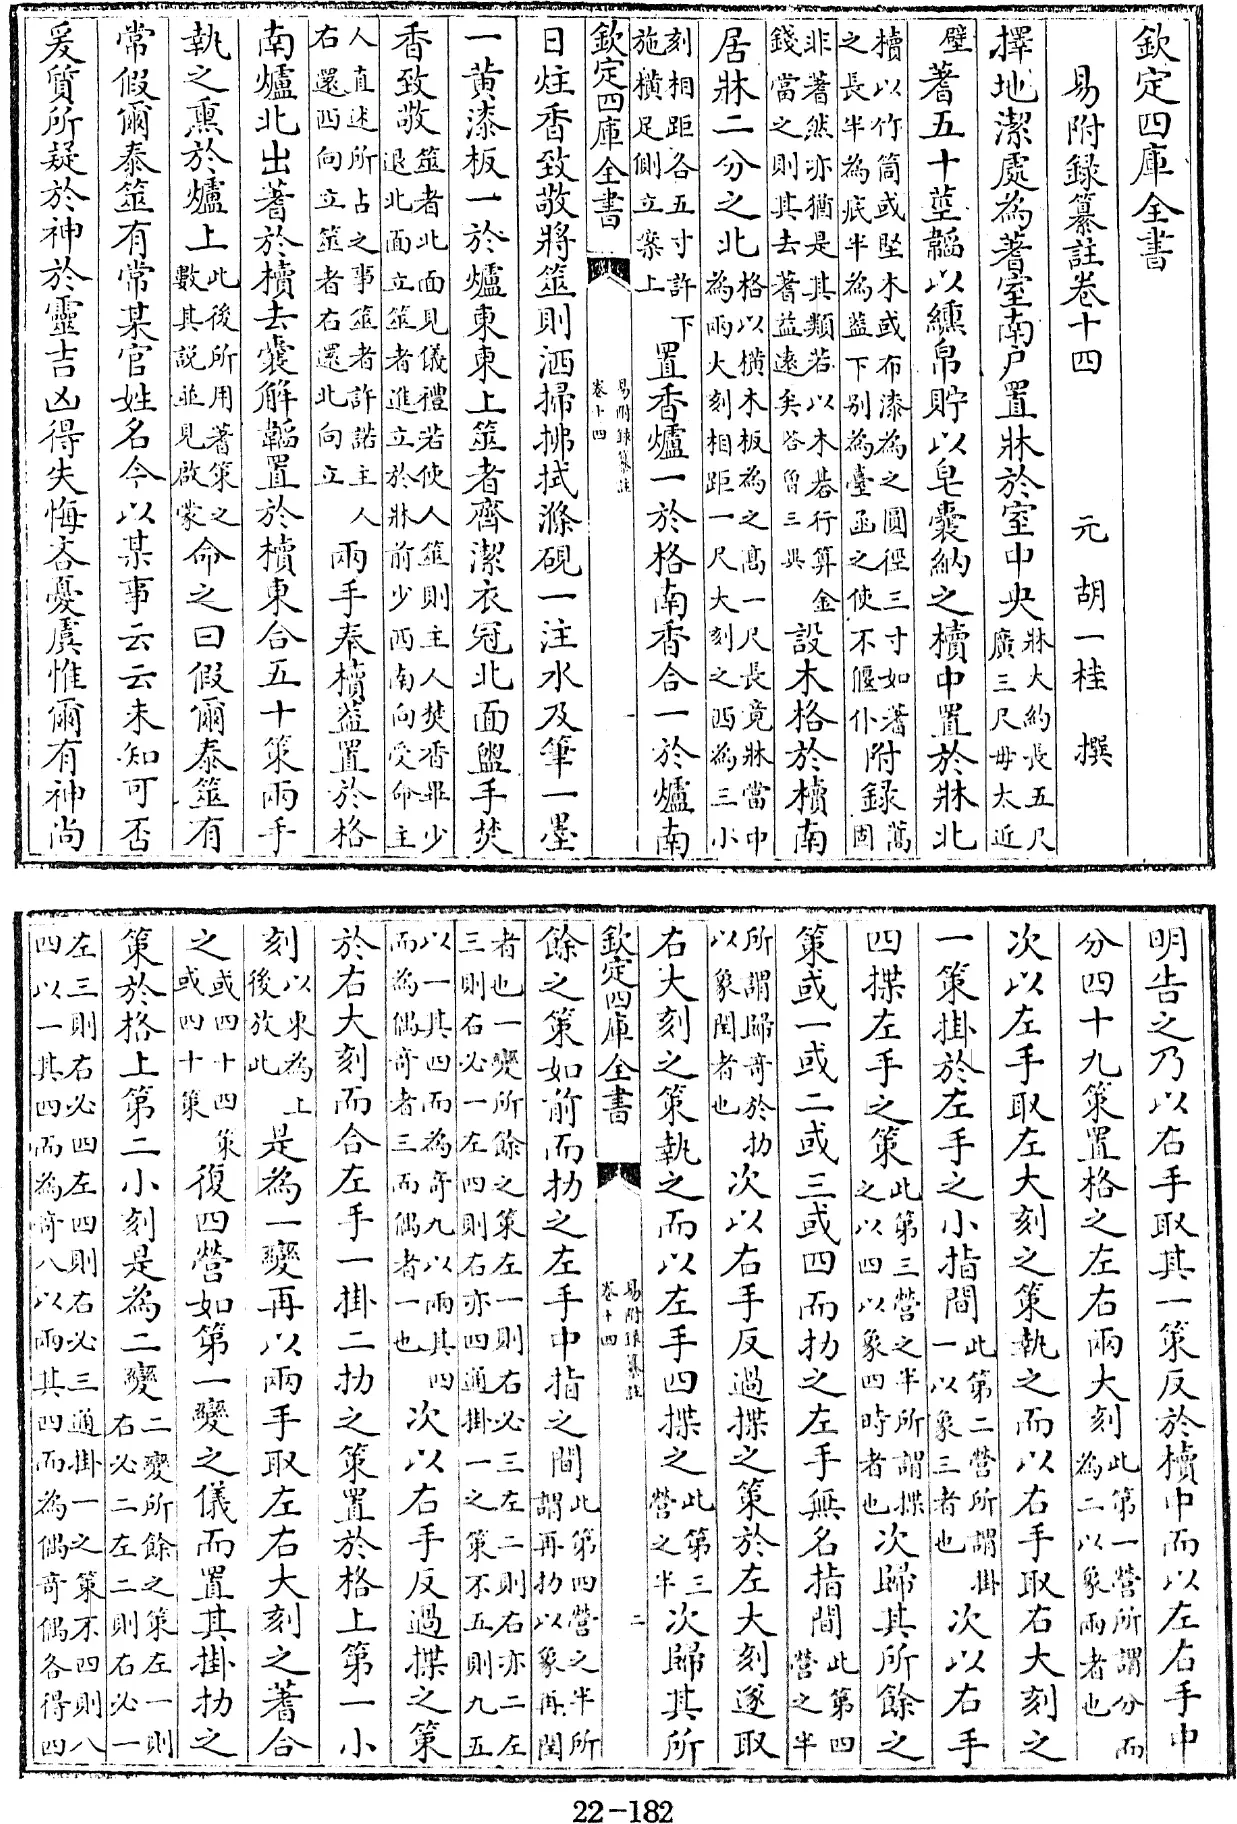 欽定四庫全書
易附録纂註卷十四 元 胡一桂 撰
擇地潔處為蓍室南户置牀於室中央牀大約長五尺廣三尺毋太近
壁蓍五十莖韜以纁帛貯以皂囊納之櫝中置於牀北
櫝以竹筒或堅木或布漆為之圓徑三寸如蓍之長半為底半為蓋下别為臺函之使不偃仆附録蒿固
非蓍然亦猶是其類若以木碁行算金錢當之則其去蓍益遠矣答曾三異設木格於櫝南
居牀二分之北格以橫木板為之高一尺長竟牀當中為兩大刻相距一尺大刻之西為三小
刻相距各五寸許下施橫足側立案上置香爐一於格南香合一於爐南
欽定四庫全書 易附録纂註 卷十四 一
日炷香致敬將筮則洒掃拂拭滌硯一注水及筆一墨
一黄漆板一於爐東東上筮者齊潔衣冠北面盥手焚
香致敬筮者北面見儀禮若使人筮則主人焚香畢少退北面立筮者進立於牀前少西南向受命主
人直述所占之事筮者許諾主人右還西向立筮者右還北向立兩手奉櫝蓋置於格
南爐北出蓍於櫝去囊解韜置於櫝東合五十策兩手
執之熏於爐上此後所用蓍策之數其説並見啟蒙命之曰假爾泰筮有
常假爾泰筮有常某官姓名今以某事云云未知可否
爰質所疑於神於靈吉凶得失悔吝憂虞惟爾有神尚
明告之乃以右手取其一策反於櫝中而以左右手中
分四十九策置格之左右兩大刻此第一營所謂分而為二以象兩者也
次以左手取左大刻之策執之而以右手取右大刻之
一策掛於左手之小指間此第二營所謂掛一以象三者也次以右手
四揲左手之策此第三營之半所謂揲之以四以象四時者也次歸其所餘之
策或一或二或三或四而扐之左手無名指間此第四營之半
所謂歸奇於扐以象閏者也次以右手反過揲之策於左大刻遂取
右大刻之策執之而以左手四揲之此第三營之半次歸其所
欽定四庫全書 易附録纂註 卷十四 二
餘之策如前而扐之左手中指之間此第四營之半所謂再扐以象再閏
者也一變所餘之策左一則右必三左二則右亦二左三則右必一左四則右亦四通掛一之策不五則九五
以一其四而為奇九以兩其四而為偶奇者三而偶者一也次以右手反過揲之策
於右大刻而合左手一掛二扐之策置於格上第一小
刻以東為上後放此是為一變再以兩手取左右大刻之蓍合
之或四十四策或四十策復四營如第一變之儀而置其掛扐之
策於格上第二小刻是為二變二變所餘之策左一則右必二左二則右必一
左三則右必四左四則右必三通掛一之策不四則八四以一其四而為奇八以兩其四而為偶奇偶各得四
22-182